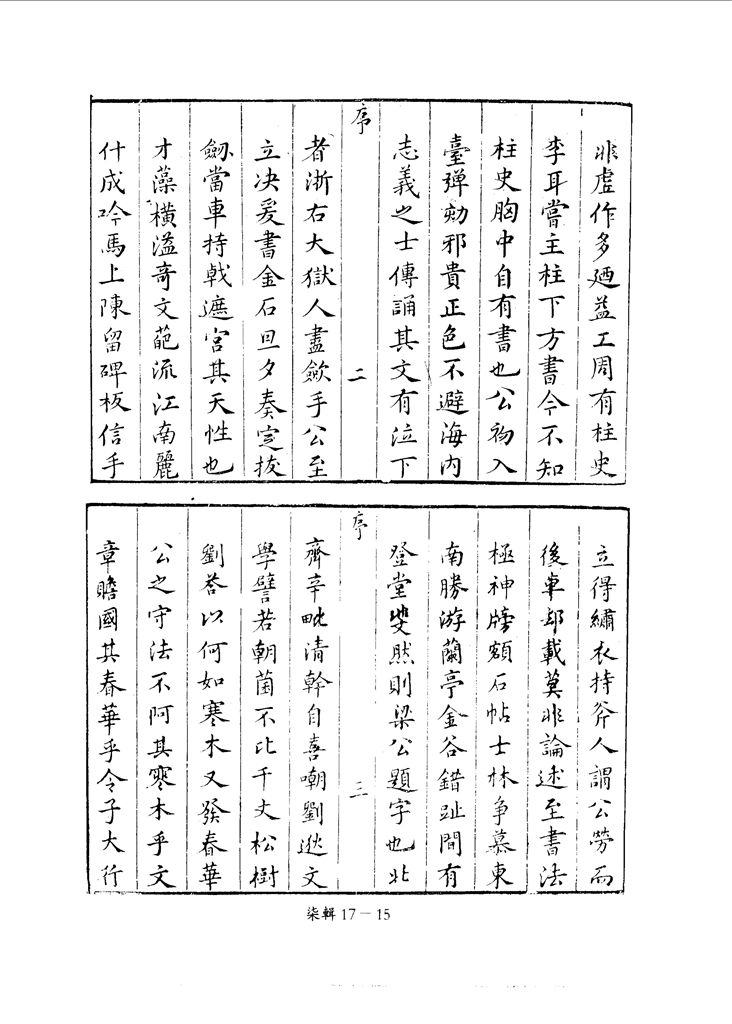 非虛作多廼益工周有柱史
李耳嘗主柱下方書今不知
柱史胸中自有書也公初入
臺彈劾邪貴正色不避海內
志義之士傳誦其文有泣下
序
二
者浙右大獄人盡歛手公至
立决爰書金石旦夕奏定拔
劒當車持戟遮宮其天性也
才藻橫溢奇文葩流江南麗
什成吟馬上陳留碑板信手
立得繡衣持斧人謂公勞而
後車却載莫非論述至書法
極神牓額石帖士林争慕東
南勝游蘭亭金谷錯趾間有
登堂雙然則梁公題字也北
序
三
齊辛毗清幹自喜嘲劉逖文
學譬若朝菌不比千丈松樹
劉荅以何如寒木又發春華
公之守法不阿其寒木乎文
章瞻國其春華乎令子大行
柒輯 17－15